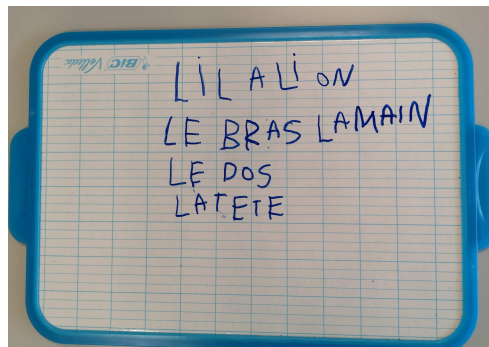 BIC Velleda
LiLALi ON
LE BRAS LAMAIN
LE DOS
LATETE